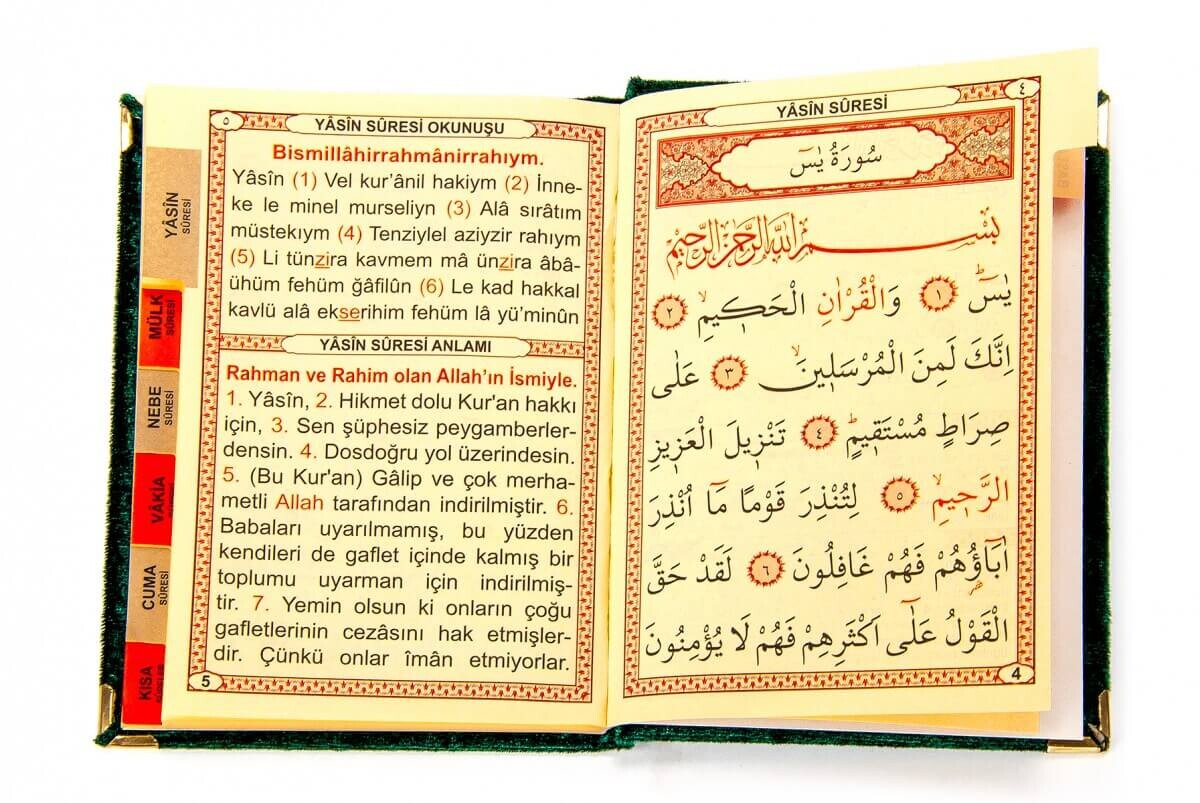 ٤
YÂSÎN SÛRESİ
سُورَةُ يٰسٓ
بِسْمِ اللّٰهِ الرَّحْمٰنِ الرَّحٖيمِ
يٰسٓۜ ﴿١﴾ وَالْقُرْاٰنِ الْحَكٖيمِۙ ﴿٢﴾
اِنَّكَ لَمِنَ الْمُرْسَلٖينَۙ ﴿٣﴾ عَلٰى
صِرَاطٍ مُسْتَقٖيمٍۜ ﴿٤﴾ تَنْزٖيلَ الْعَزٖيزِ
الرَّحٖيمِۙ ﴿٥﴾ لِتُنْذِرَ قَوْمًا مَٓا اُنْذِرَ
اٰبَٓاؤُ۬هُمْ فَهُمْ غَافِلُونَ ﴿٦﴾ لَقَدْ حَقَّ
الْقَوْلُ عَلٰٓى اَكْثَرِهِمْ فَهُمْ لَا يُؤْمِنُونَ
4
٥
YÂSÎN SÛRESİ OKUNUŞU
Bismillâhirrahmânirrahıym.
Yâsîn (1) Vel kur’ânil hakiym (2) İnne-
ke le minel murseliyn (3) Alâ sırâtım
müstekıym (4) Tenziylel aziyzir rahıym
(5) Li tünzira kavmem mâ ünzira âbâ-
ühüm fehüm ğâfilûn (6) Le kad hakkal
kavlü alâ ekserihim fehüm lâ yü’minûn
YÂSÎN SÛRESİ ANLAMI
Rahman ve Rahim olan Allah’ın İsmiyle.
1. Yâsîn, 2. Hikmet dolu Kur'an hakkı
için, 3. Sen şüphesiz peygamberler-
densin. 4. Dosdoğru yol üzerindesin.
5. (Bu Kur'an) Gâlip ve çok merha-
metli Allah tarafından indirilmiştir. 6.
Babaları uyarılmamış, bu yüzden
kendileri de gaflet içinde kalmış bir
toplumu uyarman için indirilmiş-
tir. 7. Yemin olsun ki onların çoğu
gafletlerinin cezâsını hak etmişler-
dir. Çünkü onlar îmân etmiyorlar.
5
YÂSÎN
SÛRESİ
MÜLK
SÛRESİ
NEBE
SÛRESİ
VÂKIA
CUMA
SÛRESİ
KISA